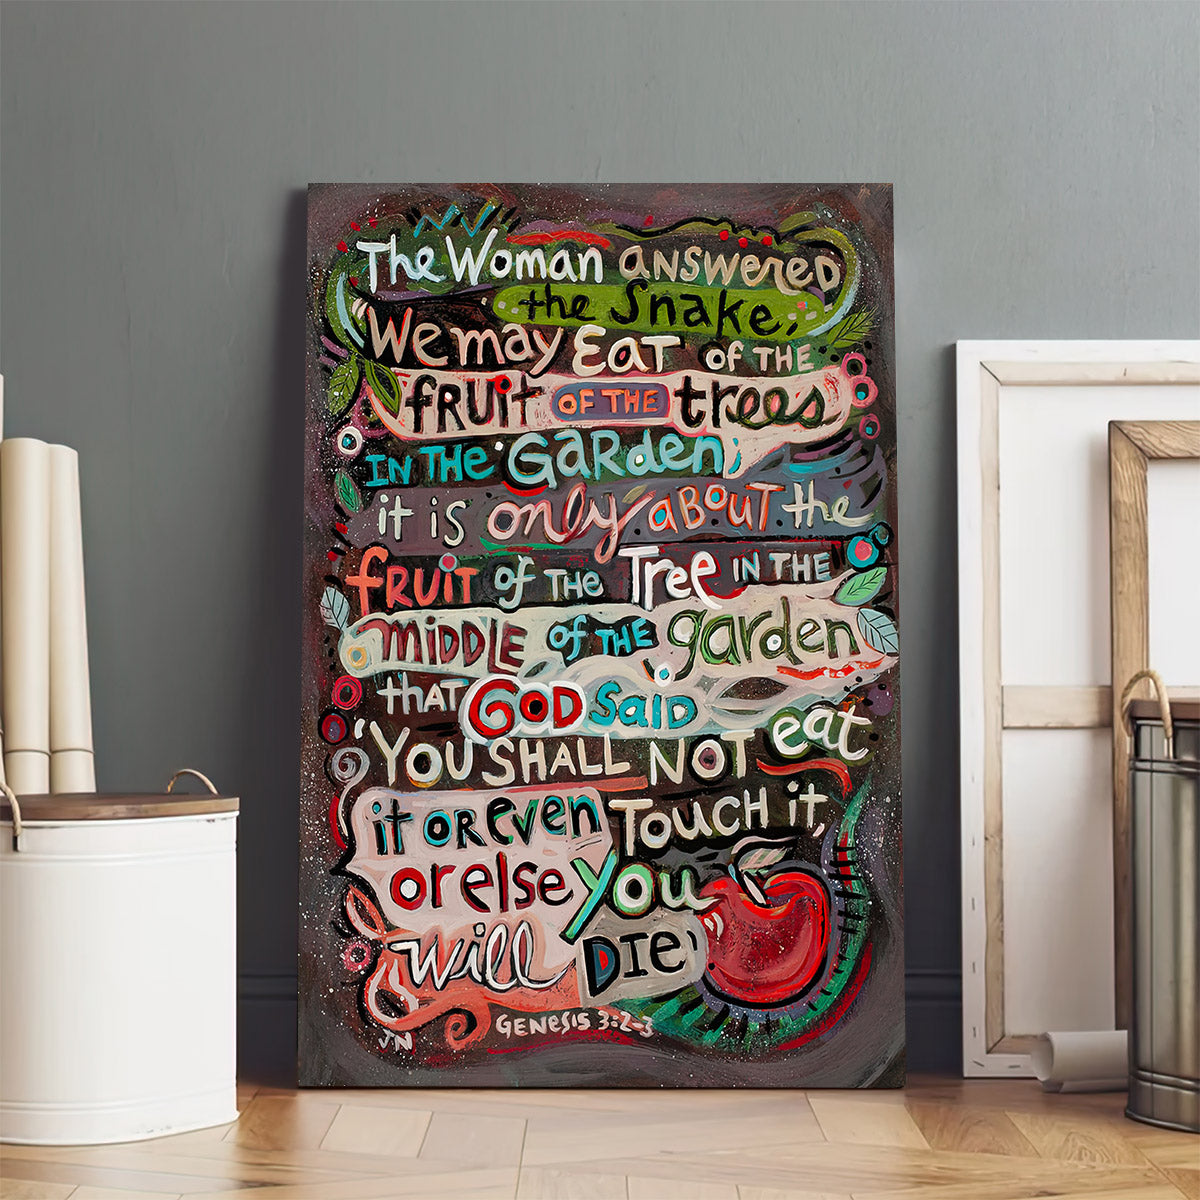 The Woman answered
the Snake,
"We may Eat of the
fruit of the trees
in the Garden;
it is only about the
fruit of the Tree in the
middle of the garden
that God said
'You shall not eat
it or even Touch it,
or else you
will Die'
Genesis 3:2-3
JN